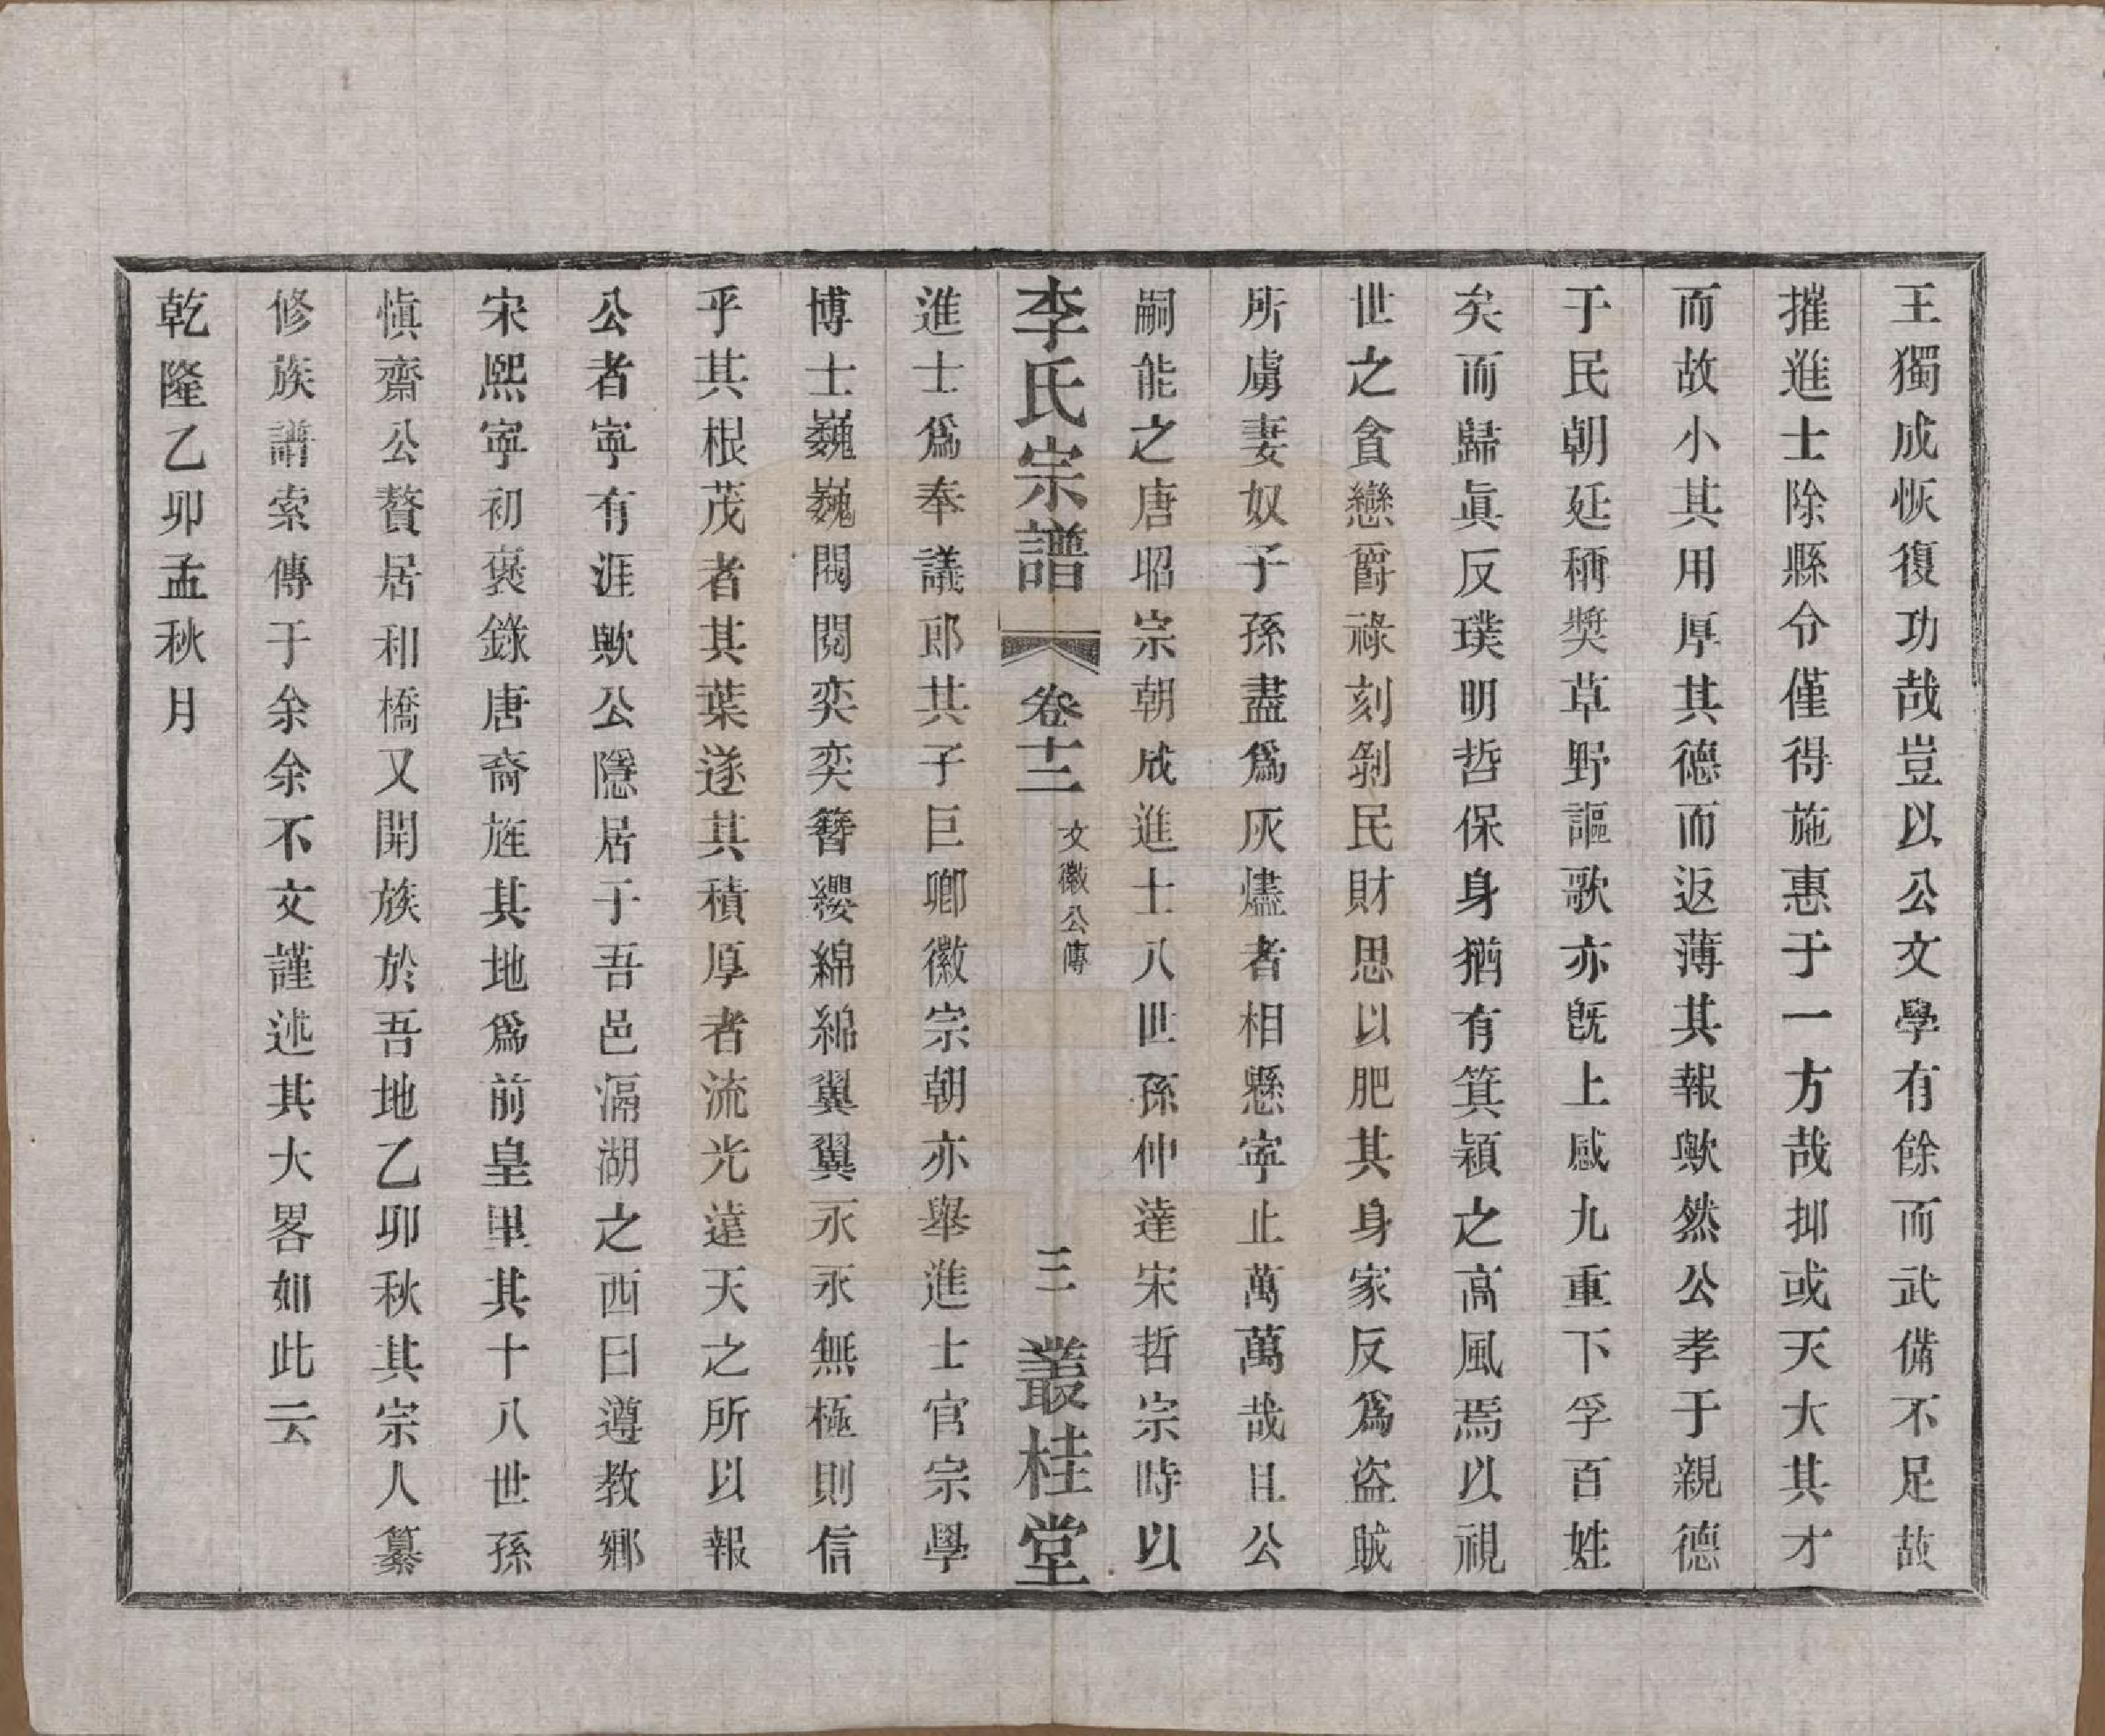 王獨成恢復功哉豈以公文學有餘而武備不足故
摧進士除縣令僅得施惠于一方哉抑或天大其才
而故小其用厚其德而返薄其報歟然公孝于親德
于民朝廷稱獎草野謳歌亦旣上感九重下孚百姓
矣而歸眞反璞明哲保身猶有箕潁之高風焉以視
世之貪戀爵祿刻剝民財思以肥其身家反爲盜賊
所虜妻奴子孫盡爲灰燼者相懸寧止萬萬哉且公
嗣能之唐昭宗朝成進士八世孫仲達宋哲宗時以
李氏宗譜 卷十二 文徽公傳 三 叢桂堂
進士爲奉議郎其子巨卿徽宗朝亦舉進士官宗學
博士巍巍閥閱奕奕簪纓綿綿翼翼永永無極則信
乎其根茂者其葉遂其積厚者流光遠天之所以報
公者寧有涯歟公隱居于吾邑滆湖之西曰遵教鄉
宋熙寧初褒錄唐裔旌其地爲前皇里其十八世孫
愼齋公贅居和橋又開族於吾地乙卯秋其宗人纂
修族譜索傳于余余不文謹述其大畧如此云
乾隆乙卯孟秋月